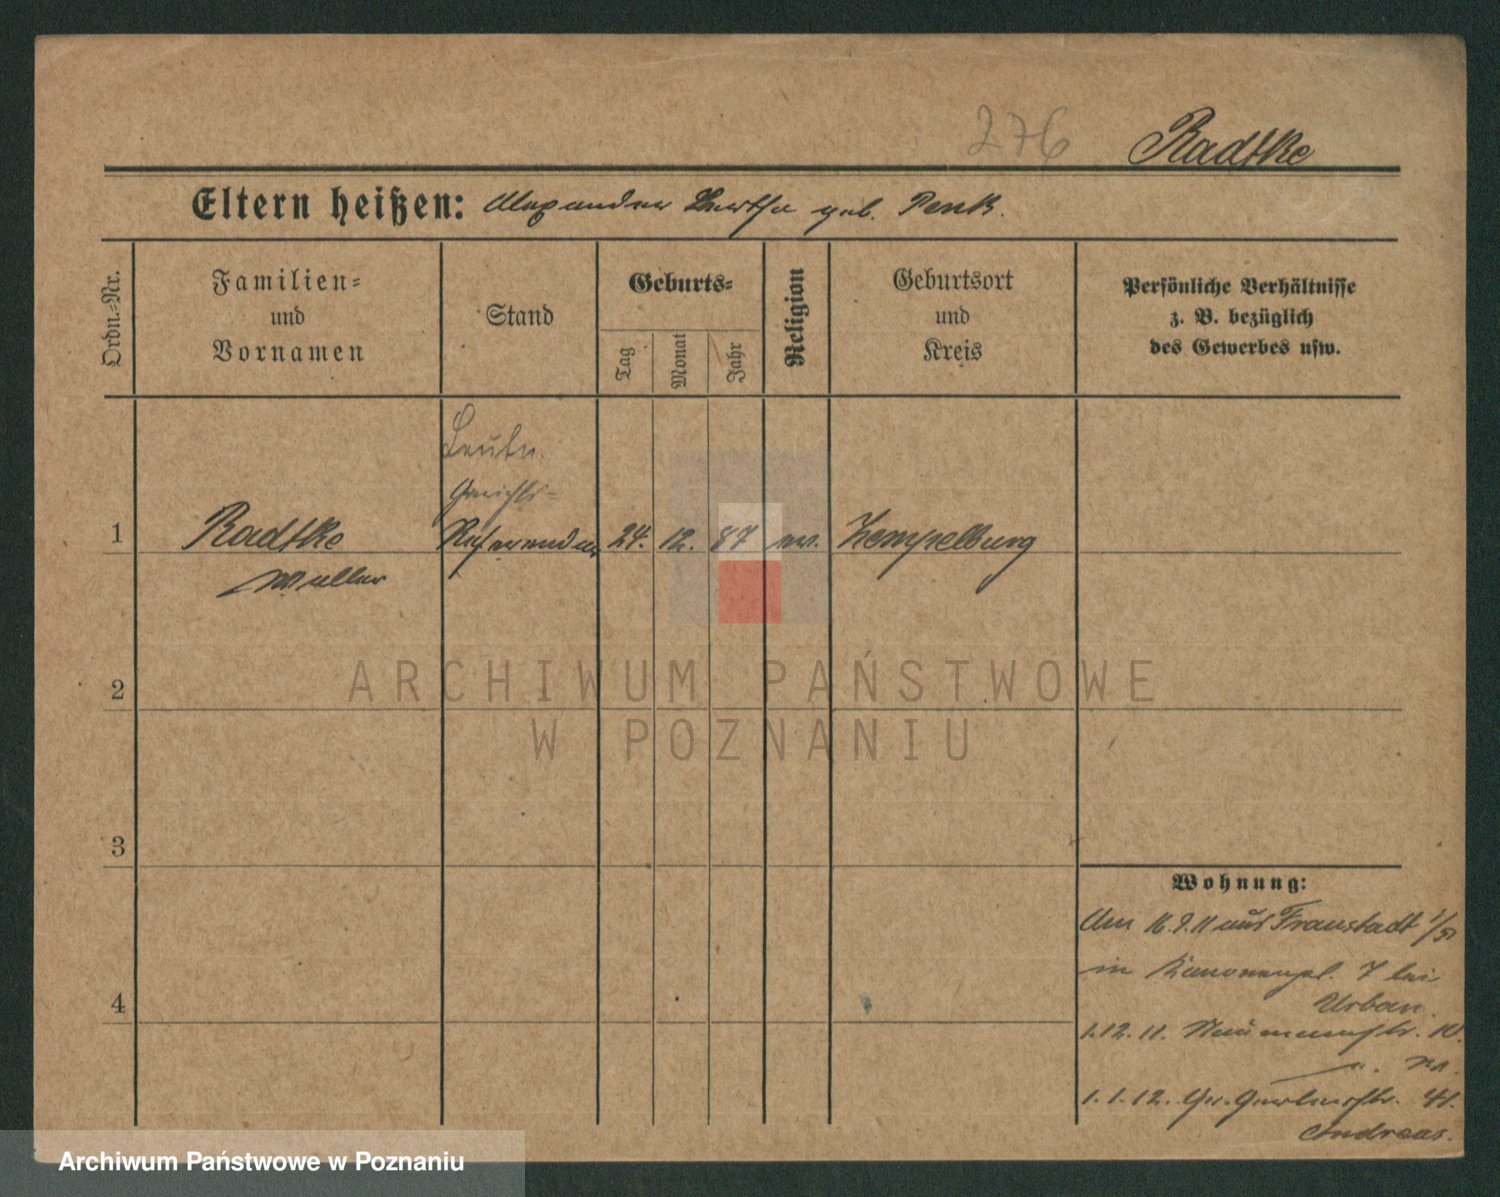 276 Radtke
Eltern heißen: Alexander Bertha geb. Penk.
Ordn.=Nr.
Familien=
und
Vornamen
Stand
Geburts=
Tag
Monat
Jahr
Religion
Geburtsort
und
Kreis
Persönliche Verhältnisse
z. B. bezüglich
des Gewerbes usw.
Leutn.
Gerichts=
1 Radtke Referendar 24. 12. 87 ev. Zempelburg
Walter
2
3
4
Wohnung:
Am 16.9.11 aus Fraustadt
in Kanonenpl. 7 bei
Urban.
1.12.11. Naumannstr. 10.
1.1.12. Gr. Gerberstr. 41.
Andreas.
ARCHIWUM PAŃSTWOWE
W POZNANIU
Archiwum Państwowe w Poznaniu